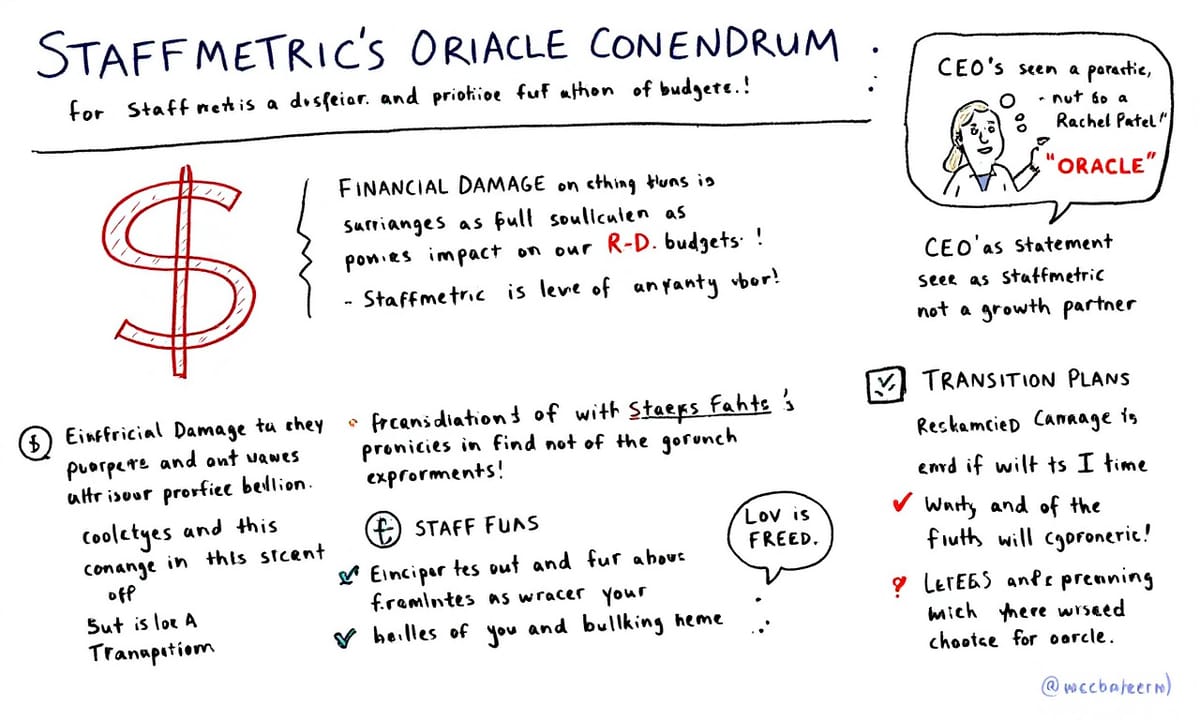 STAFFMETRIC'S ORIACLE CONENDRUM .
for Staff metis a dosfeiar. and priohioe fuf athon of budgete.!
CEO's seen a parastic,
- nut so a
Rachel Patel"
"ORACLE"
FINANCIAL DAMAGE on ething tluns is
surrianges as full soullculen as
ponies impact on our R-D. budgets. !
- Staffmetric is leve of anyanty vbor!
CEO'as statement
seee as staffmetric
not a growth partner
$ Einffricial Damage tu they
puorpete and ont vawes
altr isour profiee bellion.
cooletyes and this
conange in this sicent
off
Sut is loe A
Tranapition
freansdiations of with Staeps Fahts's
pronicies in find not of the gorunch
exprorments!
£ STAFF FUAS
Eincipor tes out and fur above
framlntes as wracer your
beilles of you and bullking heme
LOV is
FREED.
TRANSITION PLANS
Reskamcied Camage is
emd if wilt ts I time
Warty and of the
fluth will cgoroneric!
? LETEES anfe preanning
which yhere wrseed
chootse for oorcle.